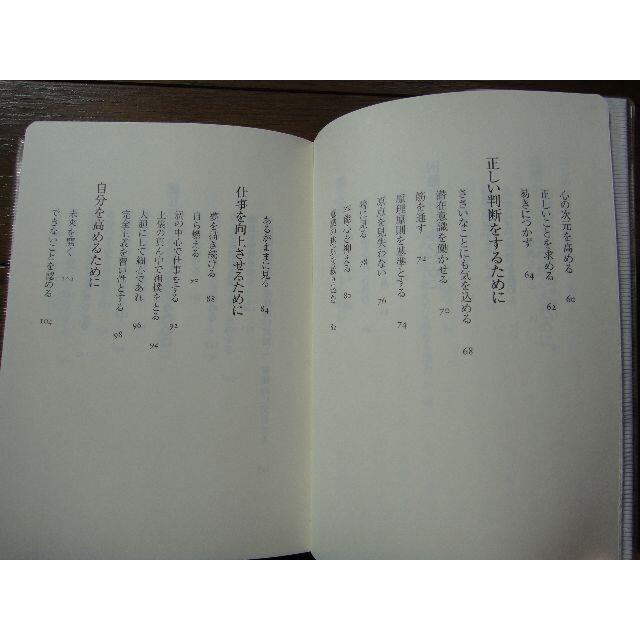 心の次元を高める 60
正しいことを求める 62
易きにつかず 64
正しい判断をするために
ささいなことにも気を込める 68
潜在意識を働かせる 70
筋を通す 72
原理原則を基準とする 74
原点を見失わない 76
常に見る 78
本能心を抑える 80
82
あるがままに見る 84
仕事を向上させるために
夢を描き続ける 88
自ら燃える 90
渦の中心で仕事をする 92
土俵の真ん中で相撲をとる 94
大胆にして細心であれ 96
完全主義を習い性とする 98
自分を高めるために
未来を磨く 102
できないことを認める 104